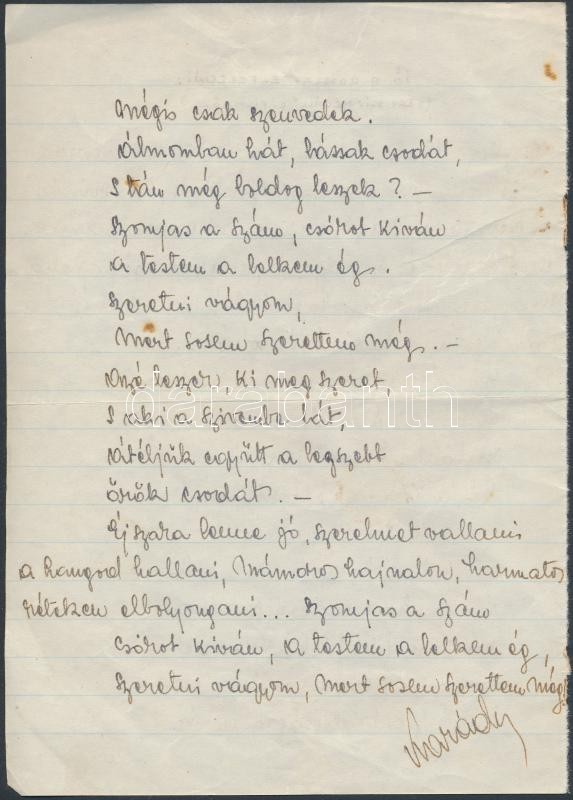 Mégis csak szenvedek.
álmomban hát, hássak csodát,
S tán még boldog leszek? –
Szomjas a Szám, csókot Kiván
a testem a lelkem ég.
Szeretni vágyom,
Mert sosem Szerettem még. –
leszer, Ki meg szeret,
S aki a Szivembe hát,
átéljük együtt a legszebb
örök csodát. –
Éjszara lenne jó, szerelmet vallani
a hangod hallani, Mámoros hajnalon, harmatos
réteken elbolyongani... Szomjas a Szám
Csókot Kiván, a testem a lelkem ég,
Szeretni vágyom, Mert sosem Szerettem még!
Karády
darabanth